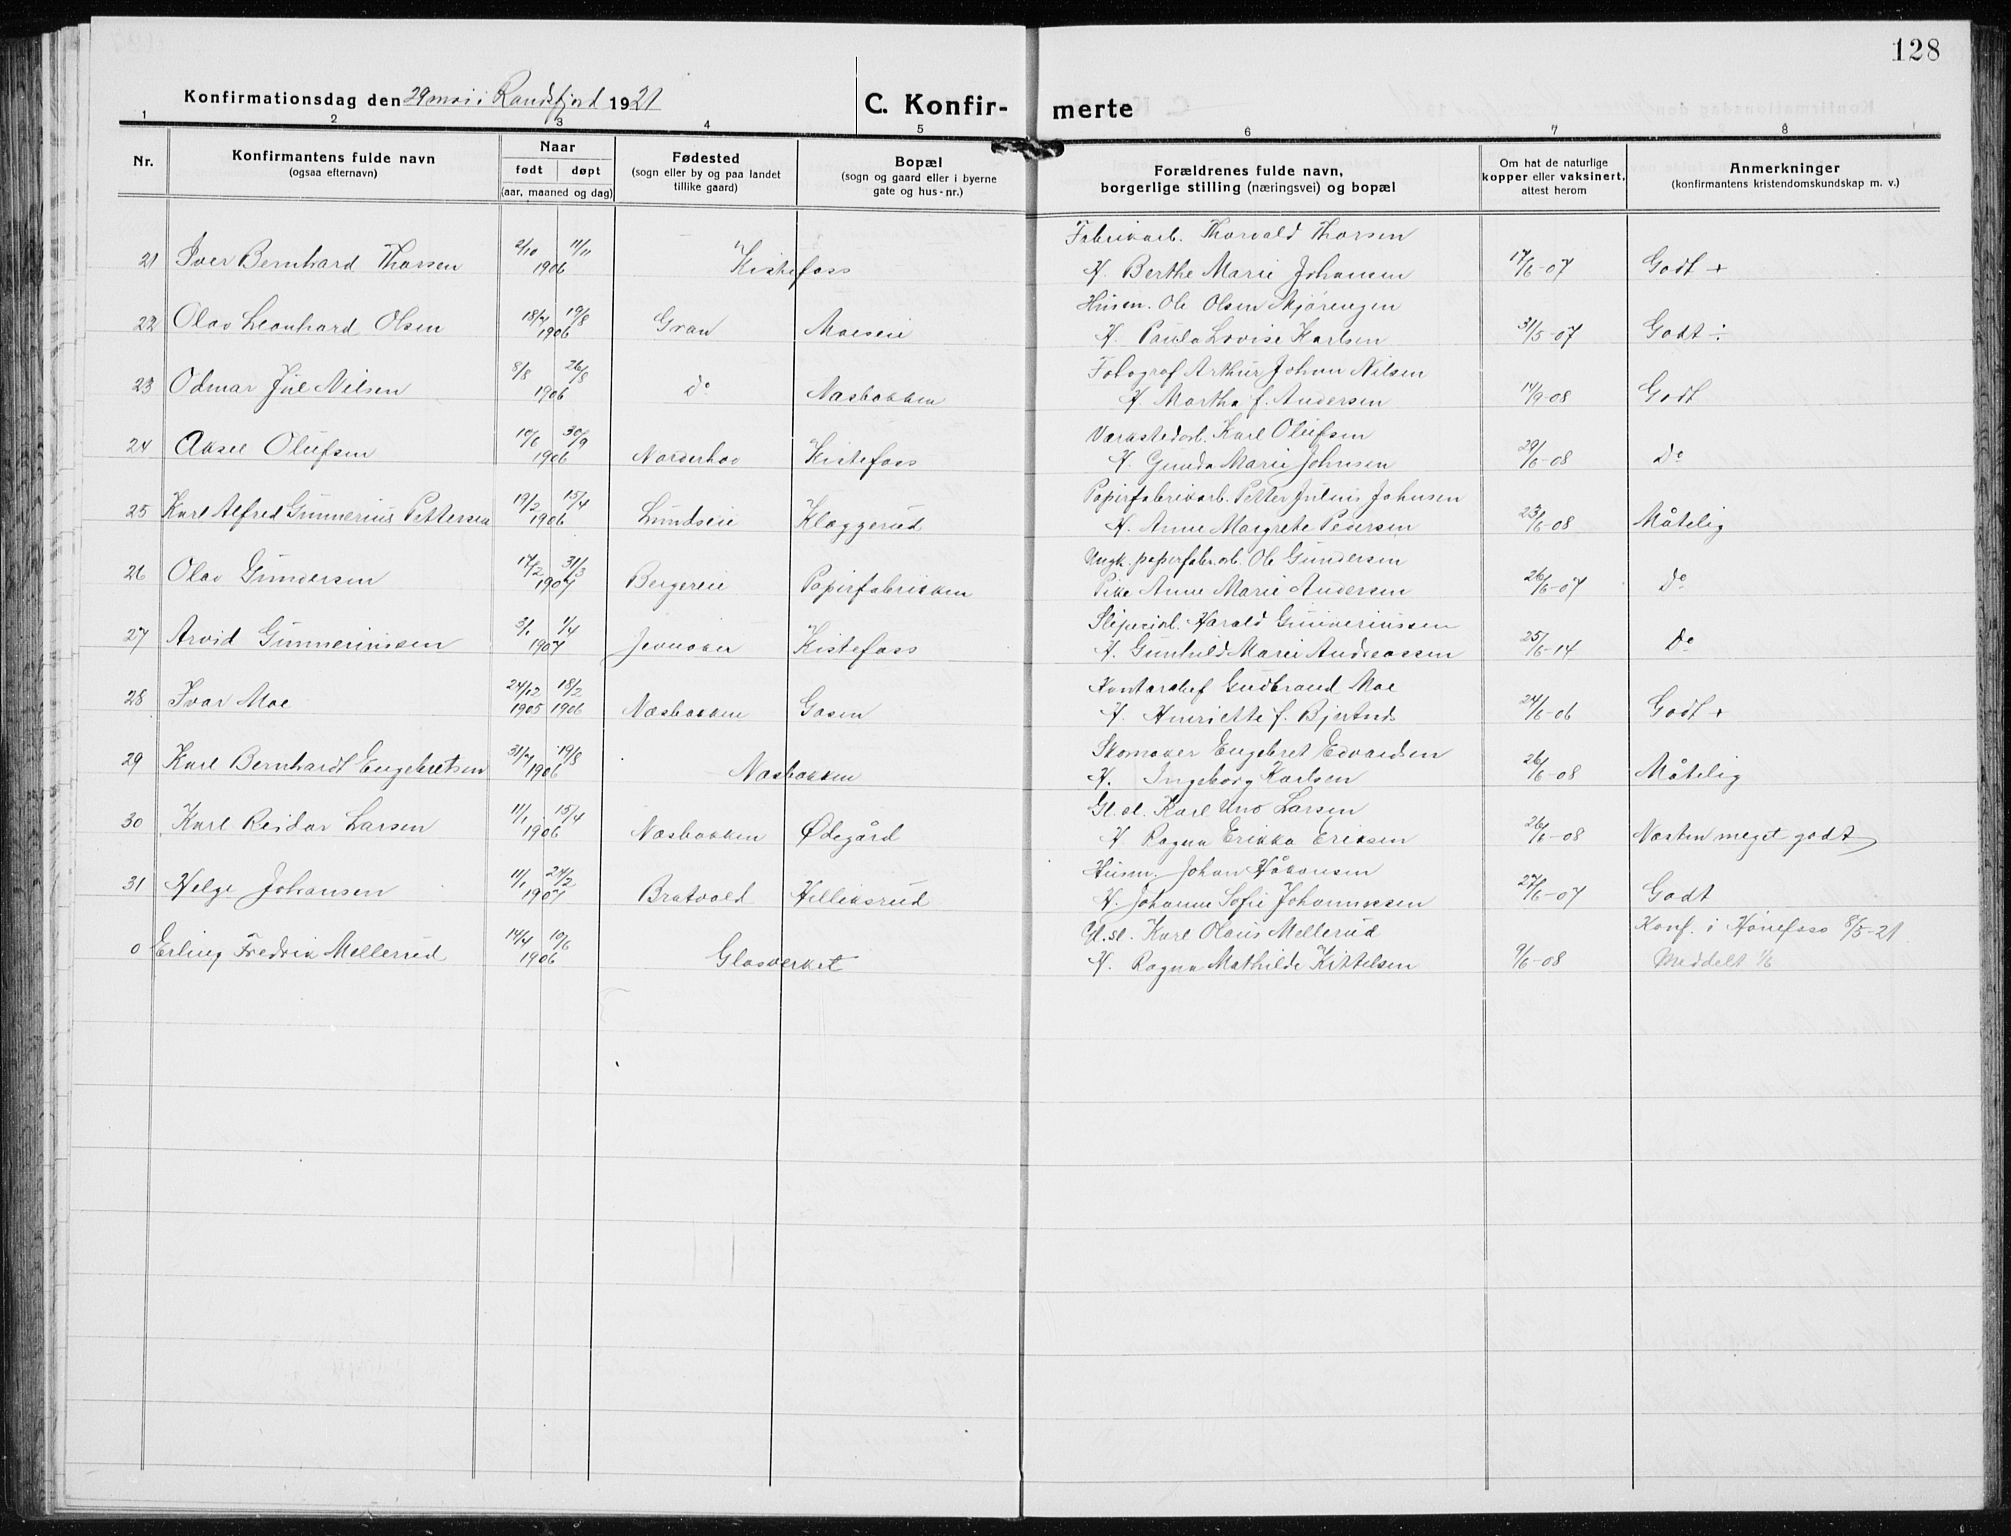 128
Konfirmationsdag den 29 mai i Randsfjord 1921
C. Konfirmerte
1 2 3 4 5 6 7 8
Nr.
Konfirmantens fulde navn
(ogsaa efternavn)
Naar
født døpt
(aar, maaned og dag)
Fødested
(sogn eller by og paa landet
tillike gaard)
Bopæl
(sogn og gaard eller i byerne
gate og hus-nr.)
Forældrenes fulde navn,
borgerlige stilling (næringsvei) og bopæl
Om hat de naturlige
kopper eller vaksinert,
attest herom
Anmerkninger
(konfirmantens kristendomskundskap m. v.)
2/10 11/11 Fabrikarb. Thorvald Thorsen
21 Iver Bernhard Thorsen 1906 Kistefoss H. Berthe Marie Johansen 17/6-07 Godt +
18/7 19/8 Husm. Ole Olsen
22 Olav Leonhard Olsen 1906 Gran Moeseie H. Paula Lovise Karlsen 31/5-07 Godt ÷
8/8 26/8 Fotograf Arthur Johan Nilsen
23 Odmar Jul Nilsen 1906 Do Næsbakken H. Martha f. Andersen 14/9-08 Godt
10/6 30/9 Værkstedarb. Karl Olufsen
24 Aksel Olufsen 1906 Norderhov Kistefoss H. Gunda Marie Johnsen 29/6-08 Do
19/2 15/4 Papirfabrikarb. Petter Julius Johnsen
25 Karl Alfred Gunnerius Pettersen 1906 Lundseie Klæggerud H. Anne Margrete Pedersen 23/6-08 Måtelig
17/2 31/3 Ungk. papirfabr.arb. Ole Gundersen
26 Olav Gundersen 1907 Bergereie Papirfabrikken Pike Anne Marie Andersen 26/6-07 Do
3/1 1/4 Sliperiarb. Harald Gunneriussen
27 Arvid Gunneriussen 1907 Jevnaker Kistefoss H. Gunhild Marie Andreassen 25/6-14 Do
24/12 18/2 Kontorchef Gudbrand Moe
28 Ivar Moe 1905 1906 Næsbakken Gosen H. Henriette f. Bjertnes 24/6-06 Godt +
31/7 19/8 Skomaker Engebret Edvardsen
29 Karl Bernhardt Engebretsen 1906 Næsbakken H. Ingeborg Karlsen 26/6-08 Måtelig
11/1 15/4 Gl.sl. Karl Uno Larsen
30 Karl Reidar Larsen 1906 Næsbakken Ødegård H. Ragna Erikka Eriksen 26/6-08 Næsten meget godt
11/1 24/2 Husm. Johan Håkonsen
31 Helge Johansen 1907 Bratvold Hilleksrud H. Johanne Sofie Johannessen 27/6-07 Godt
14/4 10/6 Gl.sl. Karl Olaus Mellerud Konf. i Hønefoss 8/5-21
0 Erling Fredrik Mellerud 1906 Glasverket H. Ragna Mathilde Kittelsen 9/6-08 Meddelt 1/6